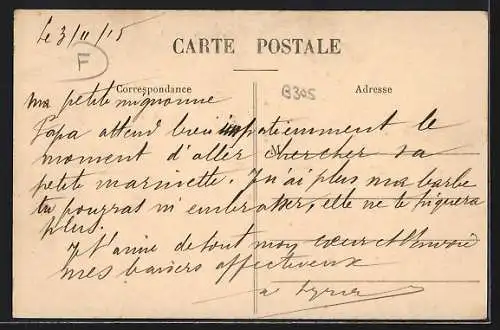 Le 3/11/15
F
CARTE POSTALE
B305
Correspondance
Adresse
ma petite mignonne
Papa attend bien impatiemment le
moment d'aller chercher sa
M
petite marinette. Je n'ai plus ma barbe
tu pourras m'embrasser, elle ne te piquera
plus.
Je t'aime de tout mon cœur et t'envoie
mes baisers affectueux